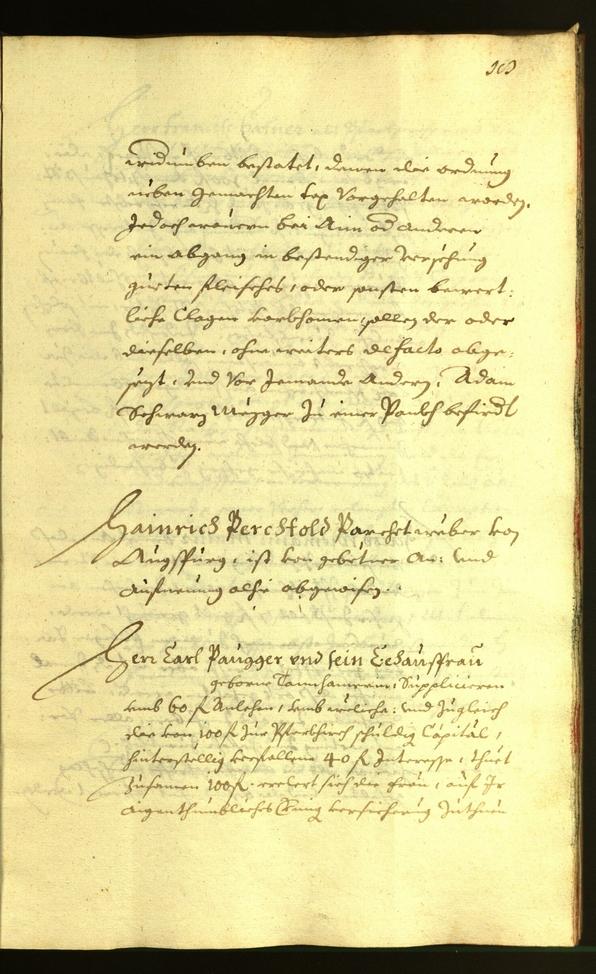 103
widumben bestatet, denen die ordnung
neben gemachten tax Vorgehalten worden.
Jedoch wouern bei Aim od anderen
ein abgang in bestendiger versehung
gueten fleisches, oder sonsten bewert:
liche Clagen vorkhomen, sollen der oder
dieselben, ohne weiters de facto abge:
sezt, vnd vor Jemands Andern, Adam
Schwarz Mezger zu einer Panckh befürdt
werden.
Hainrich Perchtold Parchetweber von
Augspurg, ist von gebetner An: vnd
Aufnemung alhie abgewisen.
Herr Carl Paugger vnd sein Eehausfrau
geborne Supplicieren
vmb 60 f Anlehen, vnd zugleich
die von 100 f zur Pfarrkirch schuldig Capital,
hinterstellig verfallene 40 f Interesse, thuet
zusamen 100 f. erbeut sich die frau, auf Ir
aigenthumbliches versicherung zuthuen